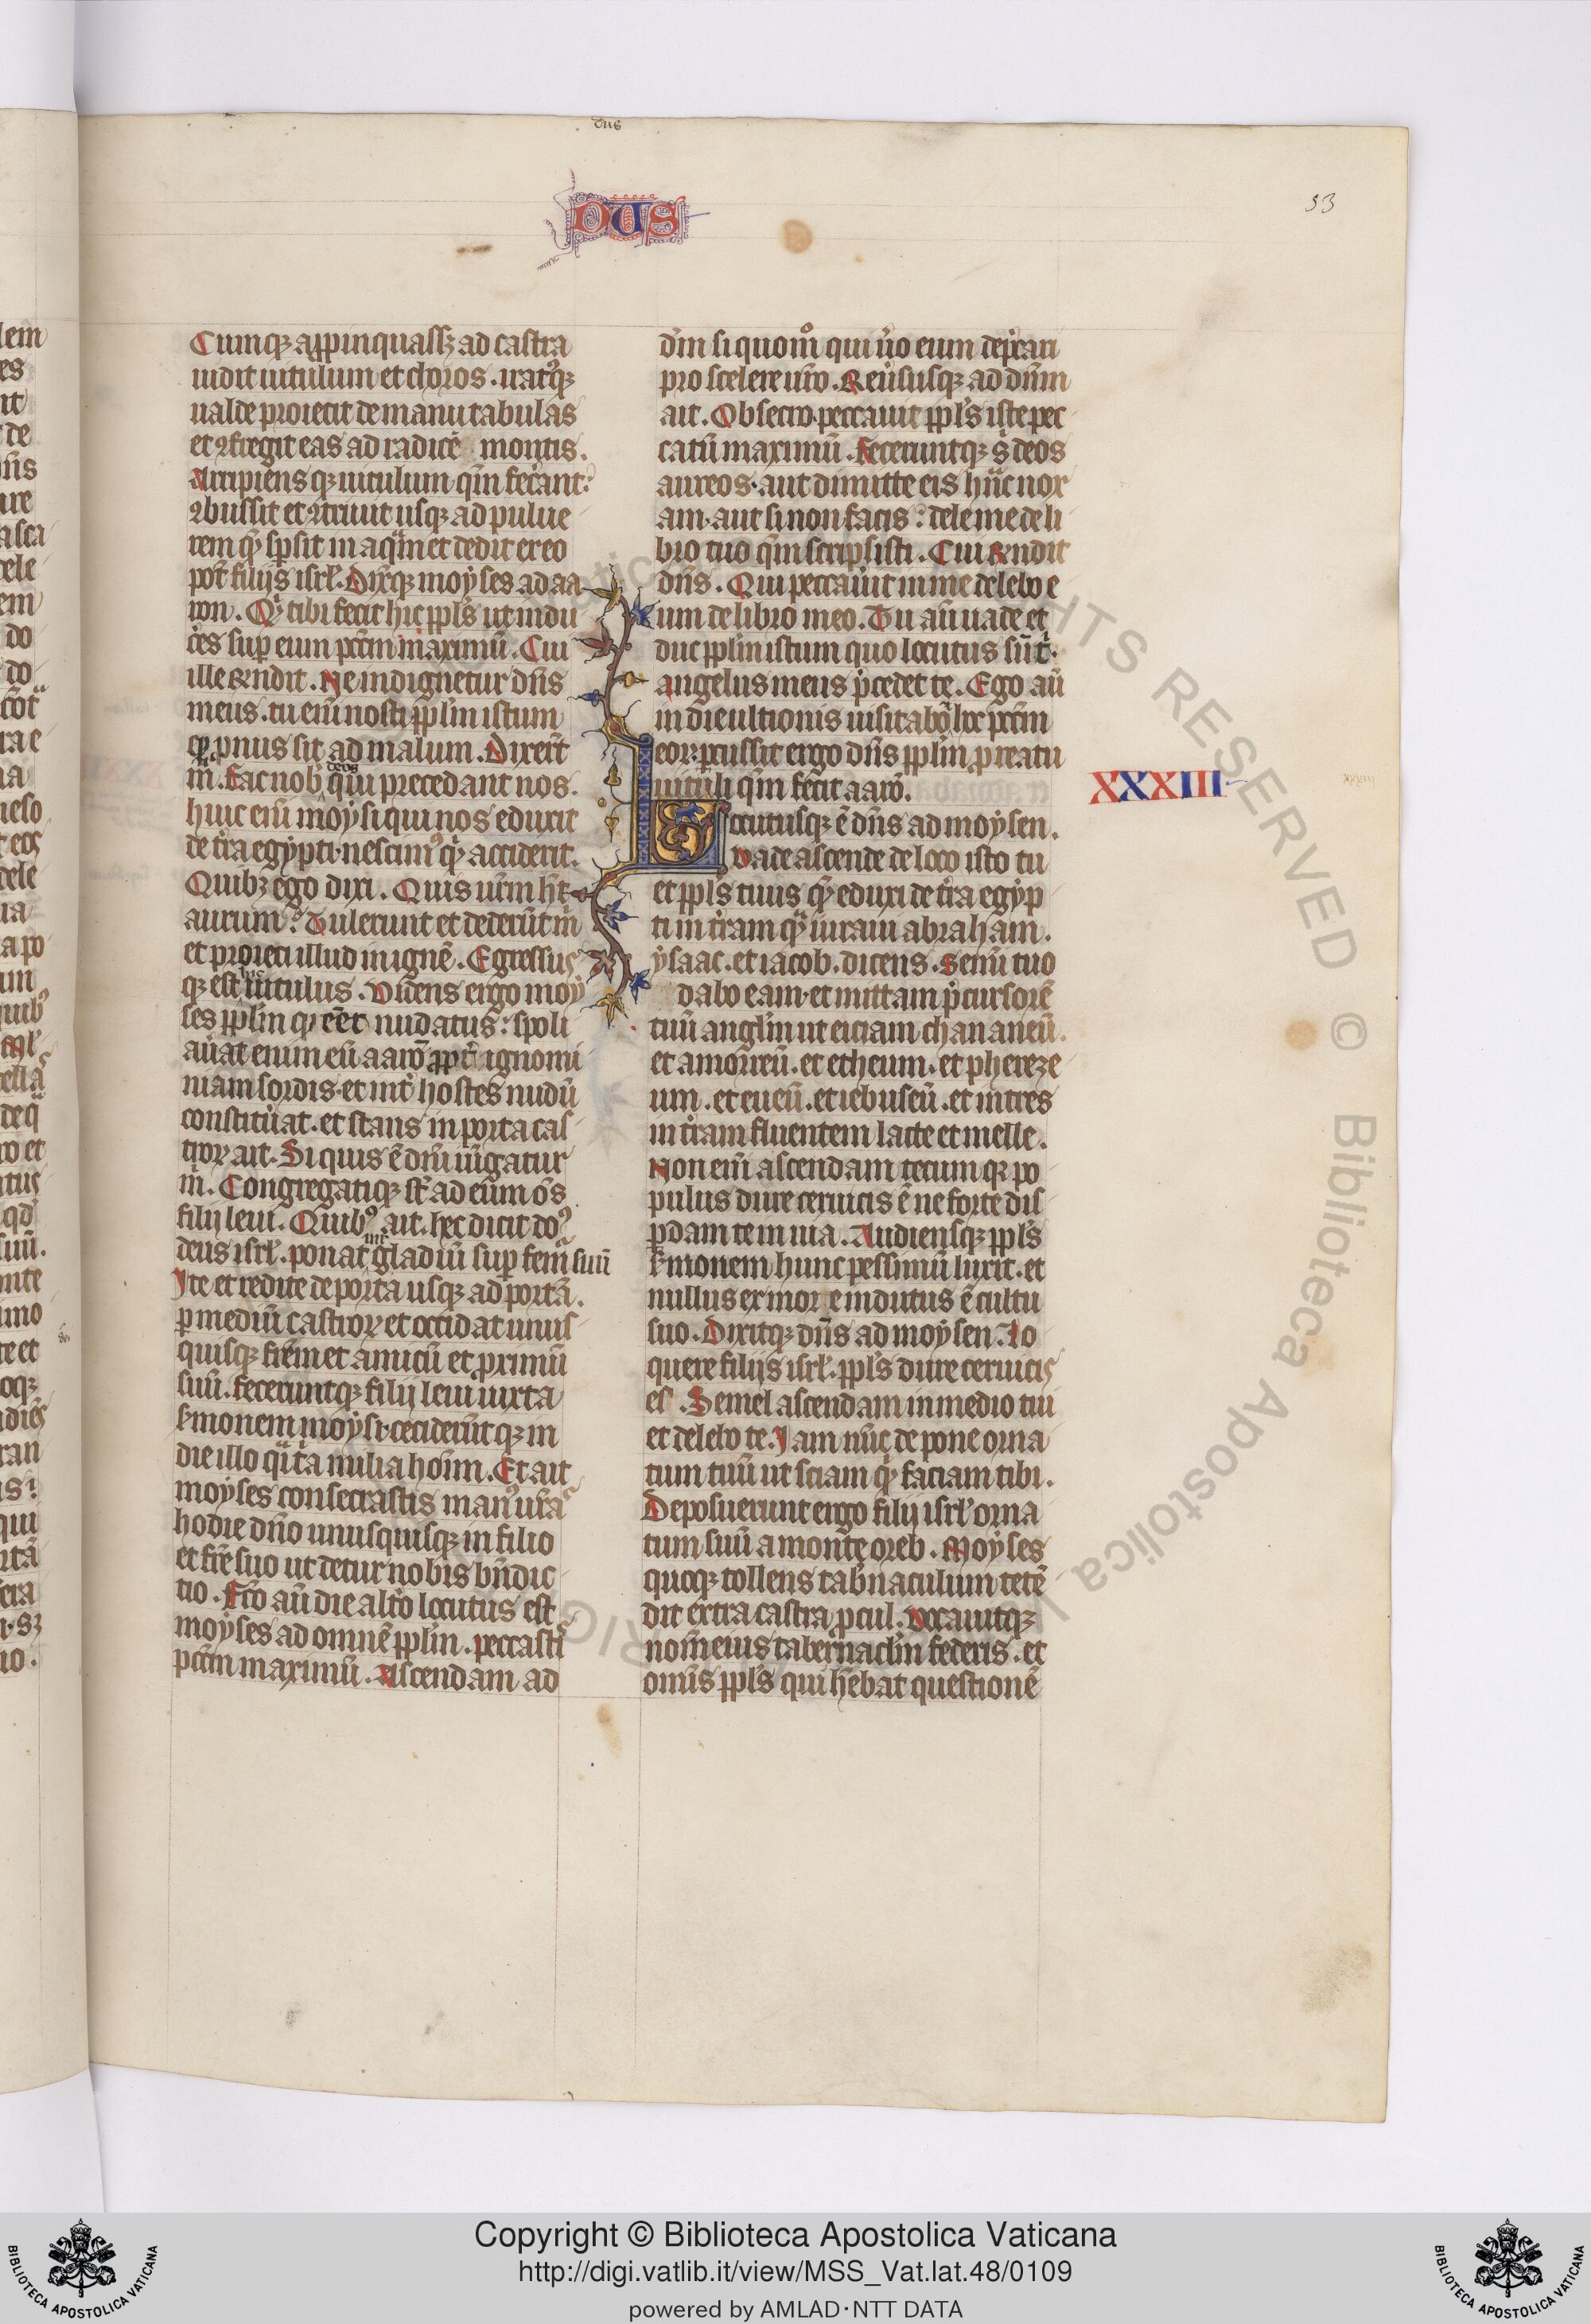 dus
DUS
53
Cumqꝫ appinquassꝫ ad castra
uidit uitulum et choros. iratꝰqꝫ
ualde proiecit de manu tabulas
et ꝯfregit eas ad radicē montis.
Arripiens qꝫ uitulum qm̄ fecant:
ꝯbussit et ꝯtriuit usqꝫ ad pulue
rem qͥ spsit in aqͣm et dedit ex eo
pot̄ filijs isrl̓. Dixitqꝫ moyses ad aa
ron. Qͥ tibi fecit hic ppl̓s ut indu
c̓es sup eum pctm̄ maximū. Cui
ille rn̄dit. Ne indignetur dn̄s
meus. tu eni nosti ppl̓m istum
qꝓ pnus sit ad malum. Dixer̄t
m̄. Fac nob̓ deos qui precedant nos.
huic eni moysi qui nos eduxit
de tr̓a egypti. nescimꝰ qͥ acciderit.
Quibꝫ ego dixi. Quis ur̄m ht
aurum? Tulerunt et dederūt m̄
et proieci illud in ignē. Egressus
qꝫ est hic uitulus. Videns ergo moy
ses ppl̓m qͥ eēt nudatus: spoli
au̓at enim eū aarō ppt̓ ignomi
niam sordis. et int̓ hostes nudū
constitu̓at. et stans in porta cas
trorꝝ ait. Si quis ē dn̄i iūgatur
m̄. Congregatiqꝫ st̄ ad eum oēs
filij leui. Quibꝰ ait. hec dicit do
deus isrl̓. ponat uir gladiū sup fem̓ suū
Ite et redite de porta usqꝫ ad portā.
p mediū castrorꝝ et occidat unus
quisqꝫ frēm et amicū et proximū
suū. feceruntqꝫ filij leui iuxta
s̓monem moysi. ceciderūtqꝫ in
die illo qͣi tͥa milia hoīm. Et ait
moyses consecrastis manꝰ ur̄as
hodie dn̄o unusquisqꝫ in filio
et frē suo ut detur nobis bn̄dic
tio. Fcō aū die alt̓o locutus est
moyses ad omnē ppl̓m. peccastis
pctm̄ maximū. Ascendam ad
dn̄m si quom̊ qui u̓o eum dep̄cari
pro scelere ur̄o. Reu̓susqꝫ ad dn̄m
ait. Obsecro. peccauit ppl̓s iste pec
catū maximū. feceruntqꝫ s̄ deos
aureos. aut dimitte eis hāc nox
am. aut si non facis: dele me de li
bro tuo qm̄ scripsisti. Cui rn̄dit
dn̄s. Qui peccauit in me delebo e
um de libro meo. Tu aū uade et
duc ppl̓m istum quo locutus sū t̓.
angelus meus p̄cedet te. Ego aū
in die ultionis uisitabo hc pctm̄
eorꝝ. pcussit ergo dn̄s ppl̓m p reatu
uituli qm̄ fecit aarō.
XXXIII
Locutusqꝫ ē dn̄s ad moysen.
vade ascende de loco isto tu
et ppl̓s tuus qͥ eduxi de tr̓a egyp
ti in tr̓am qͣ iuraui abraham.
ysaac. et iacob. dicens. Semī tuo
dabo eam. et mittam p̄cursorē
tuū angl̓m ut eiciam chananeū.
et amorreū. et etheum. et phereze
um. et eueū. et iebuseū. et intres
in tr̓am fluentem lacte et melle.
Non eni ascendam tecum qꝫ po
pulus dure ceruicis ē ne forte dis
pdam te in uia. Audiensqꝫ ppl̓s
s̓monem hunc pessimū luxit. et
nullus ex more indutus ē cultu
suo. Dixitqꝫ dn̄s ad moysen. Lo
quere filijs isrl̓. ppl̓s dure ceruicis
es. Semel ascendam in medio tui
et delebo te. Iam nūc depone orna
tum tuū ut sciam qͥ faciam tibi.
Deposuerunt ergo filij isrl̓ orna
tum suū a monte oreb. Moyses
quoqꝫ tollens tab̓naculum tetē
dit extra castra pcul. vocauitqꝫ
nom̄ eius tabernacl̓m federis. et
omīs ppl̓s qui hēbat questionē
Copyright © Biblioteca Apostolica Vaticana
http://digi.vatlib.it/view/MSS_Vat.lat.48/0109
powered by AMLAD·NTT DATA
BIBLIOTECA APOSTOLICA VATICANA
BIBLIOTECA APOSTOLICA VATICANA